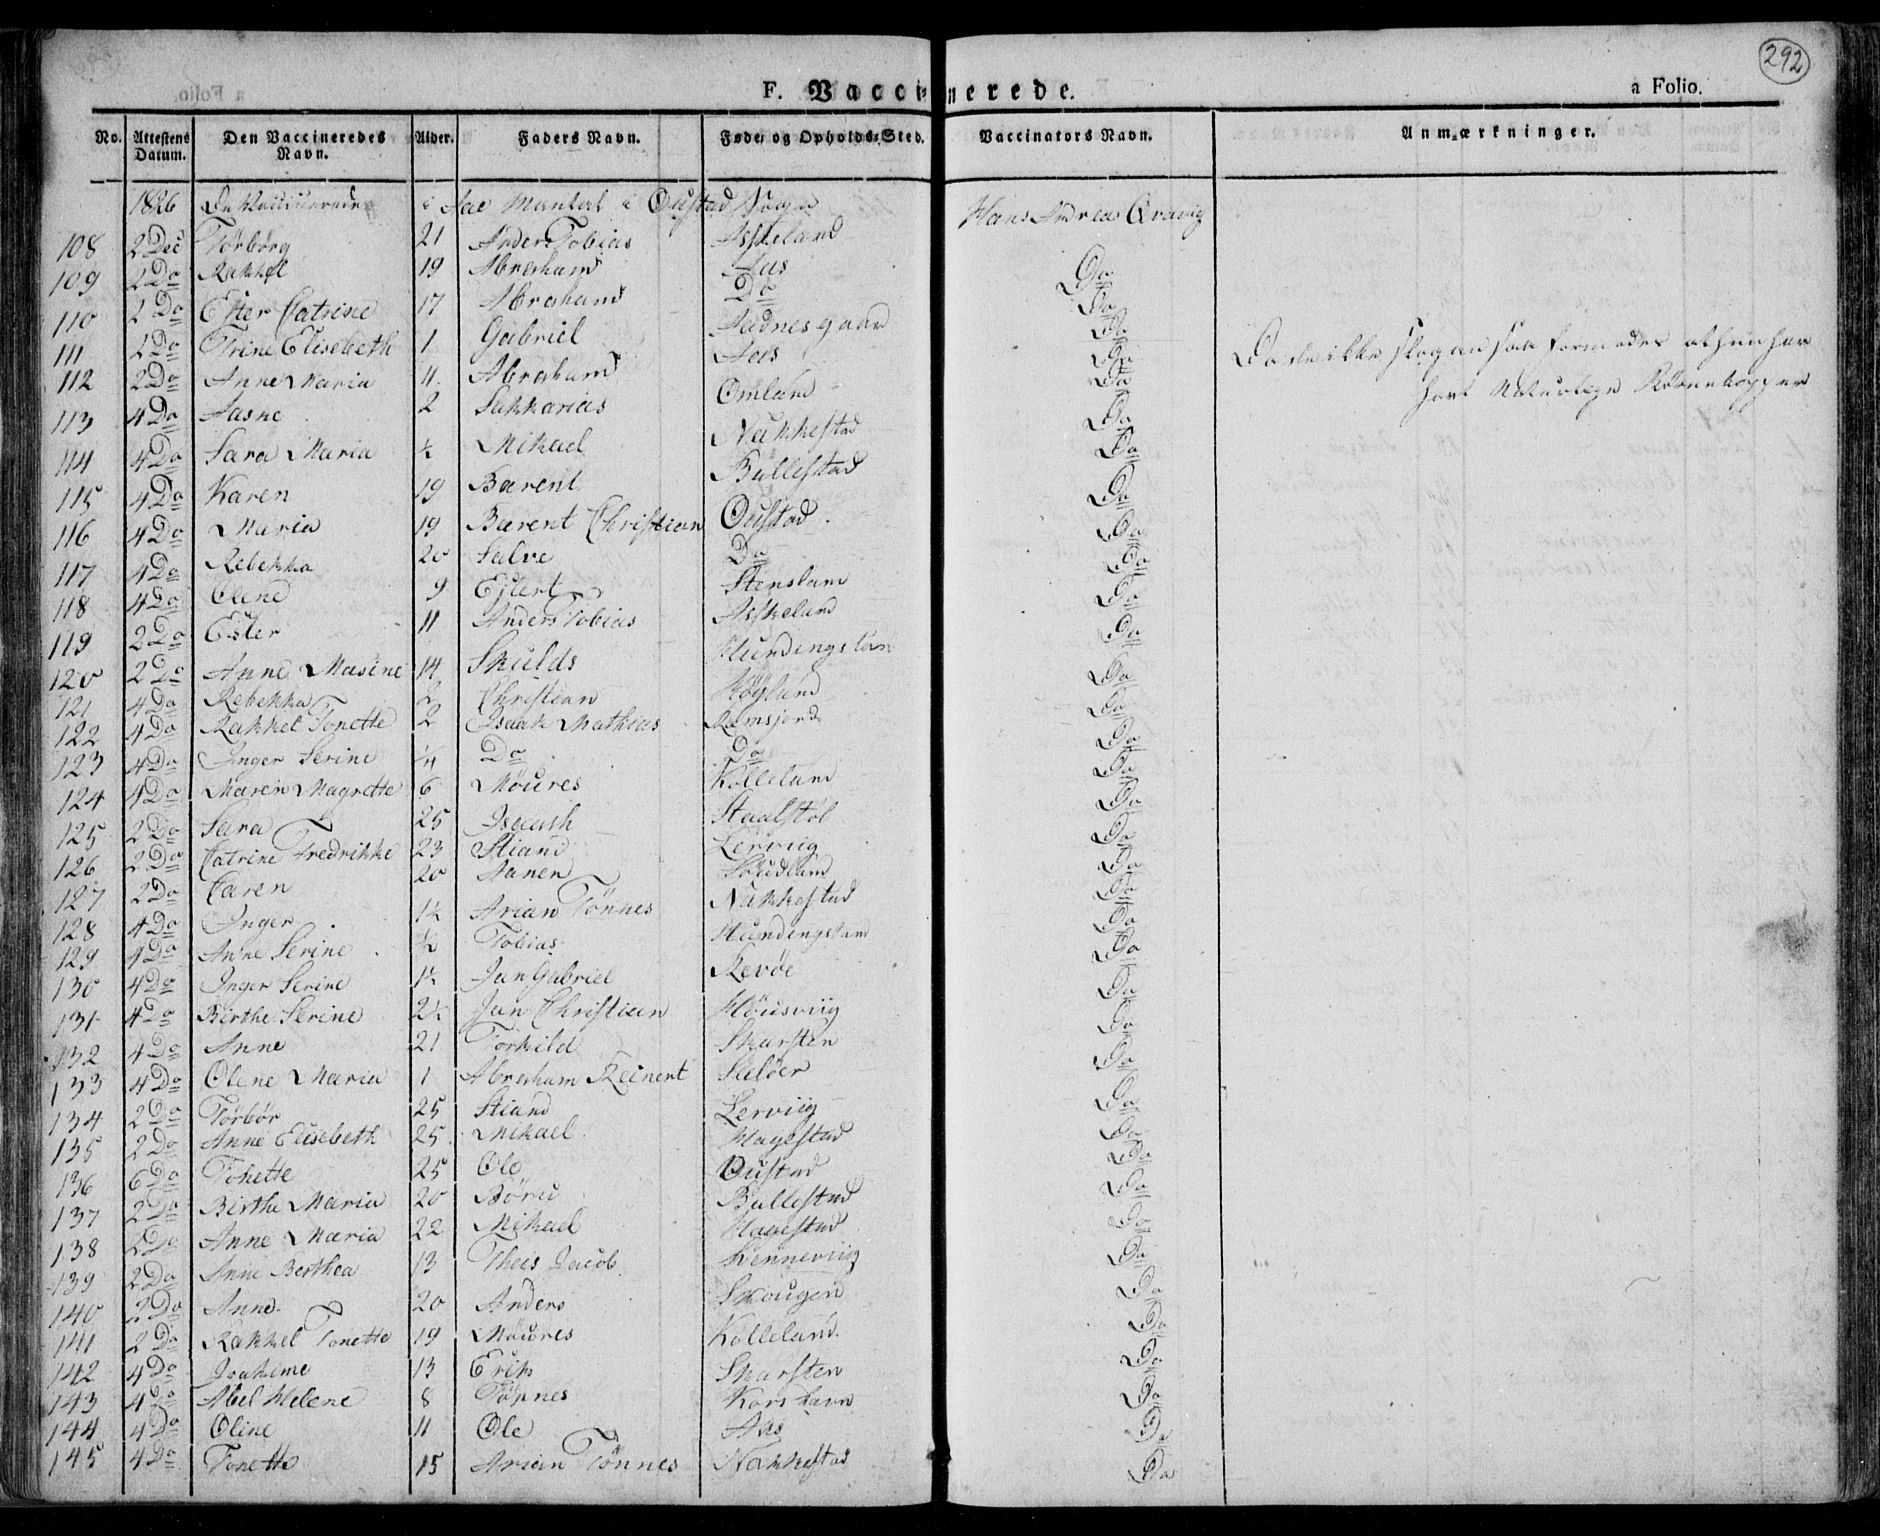 292
F. Vaccinerede. a Folio.
No. Attestens Datum. Den Vaccineredes Navn. Alder. Faders Navn. Føde- og Opholds-Sted. Vaccinators Navn. Anmærkninger.
1826 De Vaccinerede i Aae Mantal i Oustad Sogn
108 2 Dec Torborg 21 Anders Tobias Askeland Hans Andreas Qvavig
109 2 Do Rakkel 19 Abraham Aas Do
110 2 Do Ester Catrine 17 Abraham Do Do
111 2 Do Trine Elisebeth 1 Gabriel Jadnesgaar Do
112 2 Do Anne Maria 4 Abraham Aas Do ikke slog an saa formodes at hun har
113 4 Do Jasne 2 Sakkarias Omlan Do havt Naturlige
114 4 Do Sara Maria ½ Mikael Nakkestad Do
115 4 Do Karen 19 Bærent Bullestad Do
116 4 Do Maria 19 Bærent Christian Oustad Do
117 4 Do Rebekka 20 Salve Do Do
118 4 Do Oline 9 Ejlert Stensland Do
119 2 Do Ester 11 Anders Tobias Askeland Do
120 2 Do Anne Masine 14 Skulds Do
121 4 Do Rebekka 2 Christian Høyland Do
122 4 Do Rakkel Tonette 2 Isaak Mathias Do
123 4 Do Inger Serine ¼ Do Do Do
124 4 Do Maren Magrette 6 Moures Kolleland Do
125 2 Do Sara 25 Isaach Staalstøl Do
126 2 Do Catrine Fredrikke 23 Stian Lerviig Do
127 2 Do Caren 20 Janen Do
128 4 Do Inger 1½ Arian Tönnes Nakkestad Do
129 4 Do Anne Serine ½ Tobias Do
130 4 Do Inger Serine 1½ Jan Gabriel Revöe Do
131 4 Do Birthe Serine 2½ Jan Christian Housviig Do
132 4 Do Anne 21 Torkild Skarsten Do
133 4 Do Olene Maria 1 Abraham Reinert Seløer Do
134 2 Do Torbör 25 Stian Lerviig Do
135 2 Do Anne Elisebeth 25 Mikael Hagestad Do
136 6 Do Tonette 25 Ole Oustad Do
137 2 Do Birthe Maria 20 Böru Bullestad Do
138 2 Do Anne Maria 22 Mikael Hagestad Do
139 2 Do Anne Berthea 13 Thees Jacob Renneviig Do
140 2 Do Anne 20 Anders Skougen Do
141 2 Do Rakkel Tonette 19 Moures Kolleland Do
142 4 Do Joakime 13 Erik Skarsten Do
143 4 Do Abel Helene 8 Tönnes Korshavn Do
144 4 Do Oline 11 Ole Aas Do
145 4 Do Tonette 15 Arian Tönnes Nakkestad Do